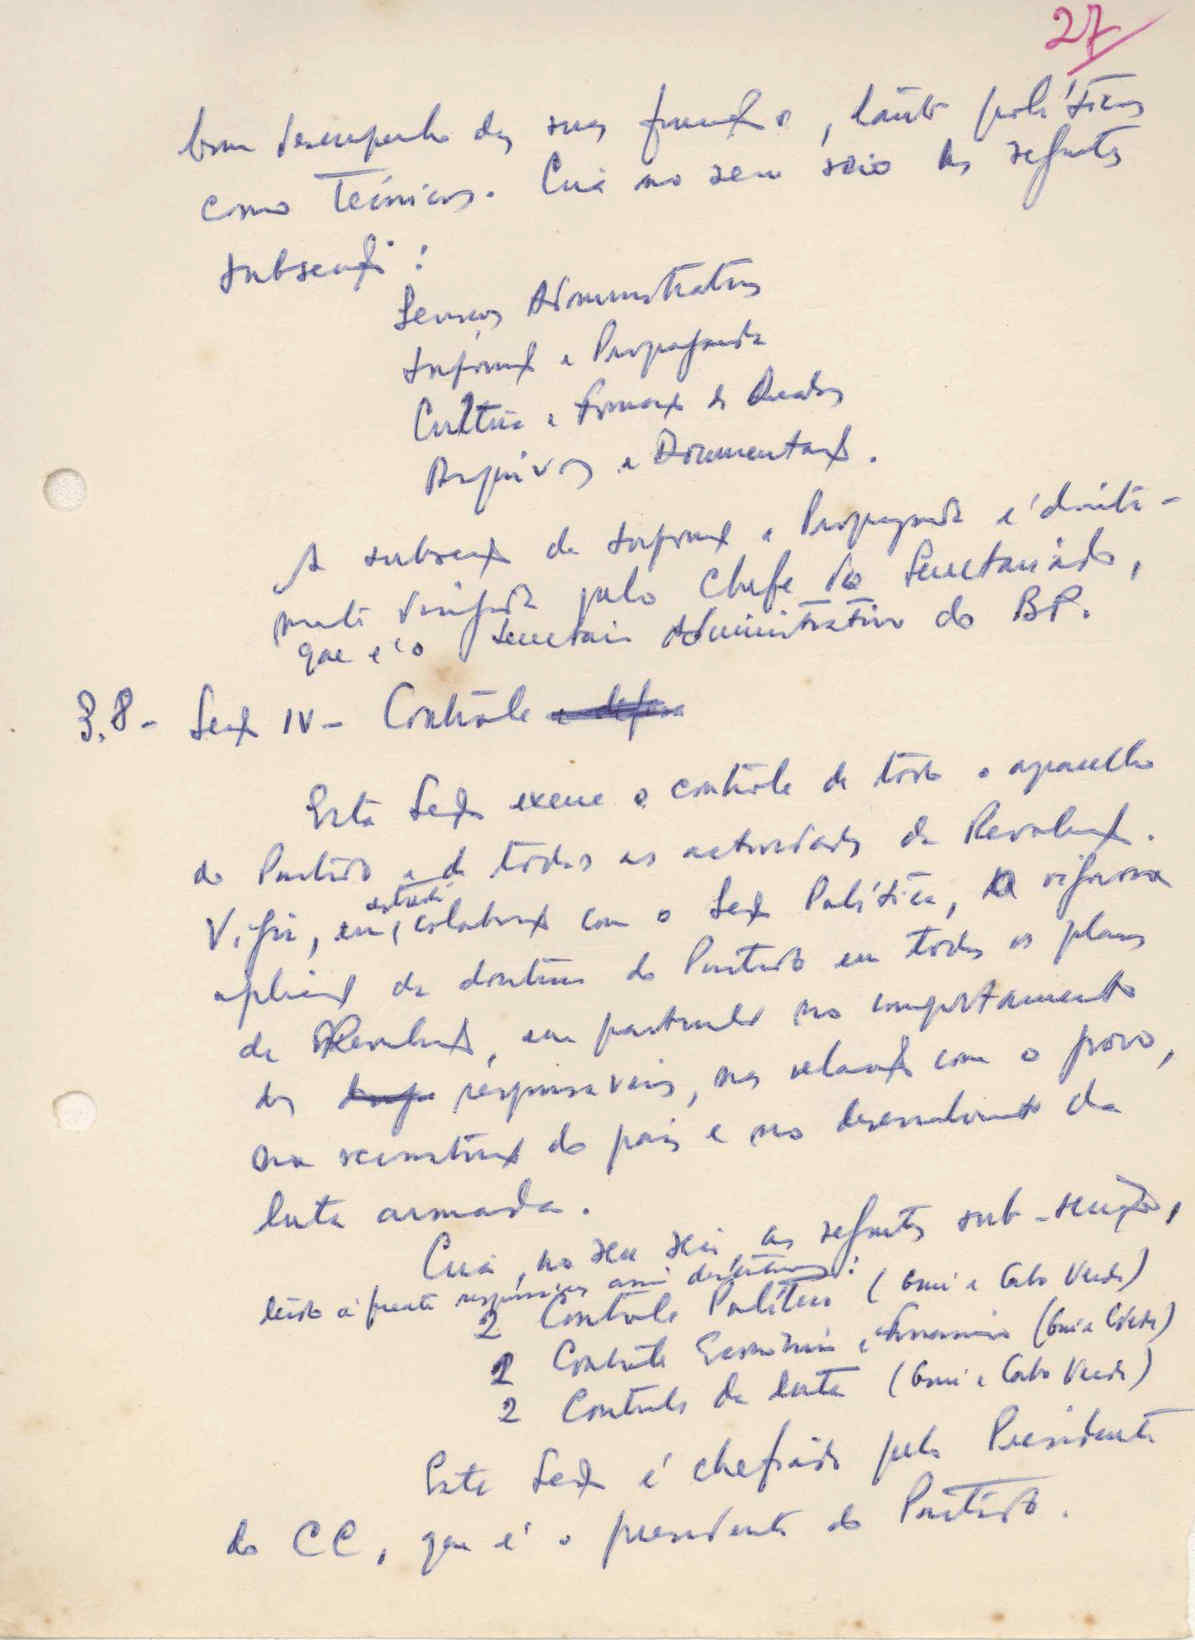 27
bom desempenho das suas funções, tanto políticas
como técnicas. Cria no seu seio as seguintes
subsecções:
Serviços Administrativos
Informação e Propaganda
Cultura e Formação de Quadros
Arquivos e Documentação.
A subsecção de Informação e Propaganda é directa-
mente dirigida pelo Chefe do Secretariado,
que é o Secretário Administrativo do BP.
3.8- Secção IV- Contrôle e defesa
Esta Secção exerce o contrôle de todo o aparelho
do Partido e de todas as actividades da Revolução.
Vigia, em estreita colaboração com a Secção Política, a rigorosa
aplicação da doutrina do Partido em todos os planos
da Revolução, em particular no comportamento
dos responsáveis, nas relações com o povo,
na reconstrução do país e no desenvolvimento da
luta armada.
Cria, no seu seio, as seguintes sub-secções,
tendo à frente responsáveis assim
2 Contrôle Político (Guiné e Cabo Verde)
2 Contrôle Económico e Financeiro (Guiné e C. Verde)
2 Contrôle da luta (Guiné e Cabo Verde)
Esta Secção é chefiada pelo Presidente
do CC, que é o presidente do Partido.